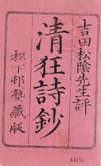 吉田松陰先生評
清狂詩鈔
松下邨塾藏版